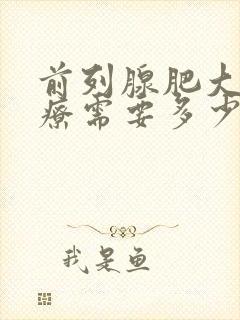 前列腺肥大
疗需要多少
我是鱼